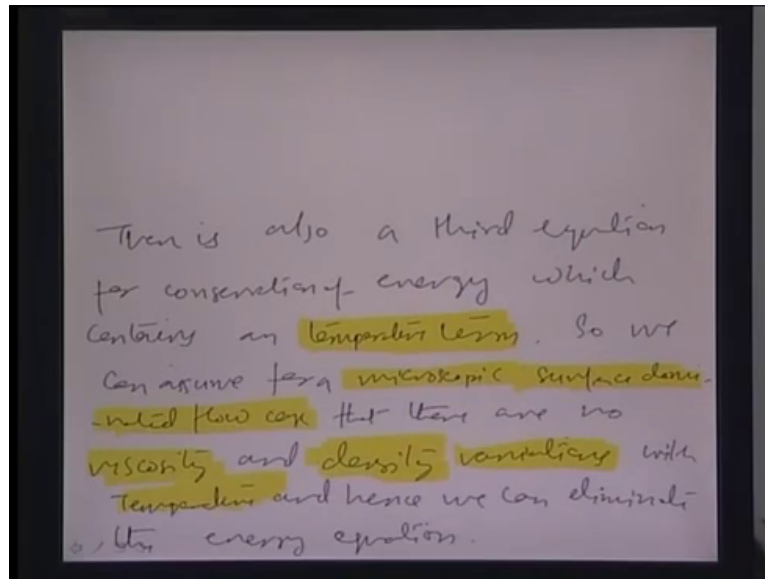 There is also a third equation
for conservation of energy which
contains an temperature term. So we
can assume for a microscopic surface domi-
-nated flow case that there are no
viscosity and density variations with
Temperature and hence we can eliminate
the energy equation.